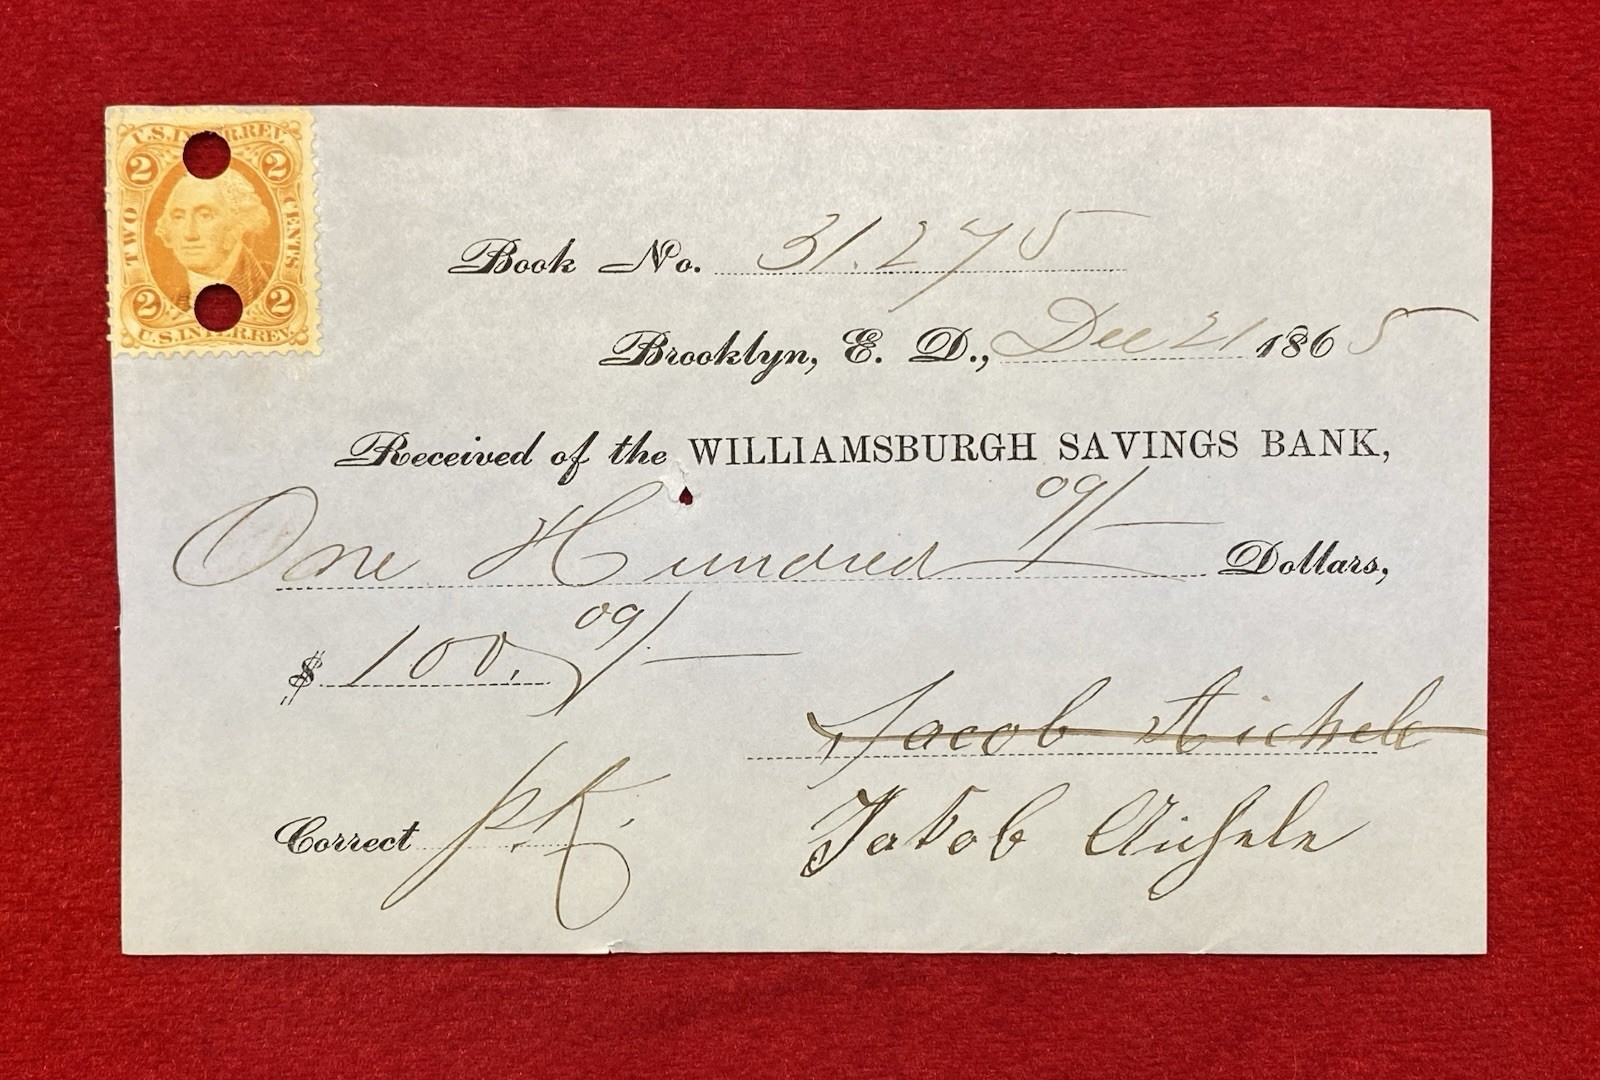 U.S. INTER. REV.
2 2
TWO CENTS
2 2
U.S. INTER. REV.
Book No. 31.275
Brooklyn, E. D., Dec 21 1865
Received of the WILLIAMSBURGH SAVINGS BANK,
One Hundred 09/— Dollars,
$ 100, 09/—
Jacob Aichele
Correct pK. Jakob Aichele